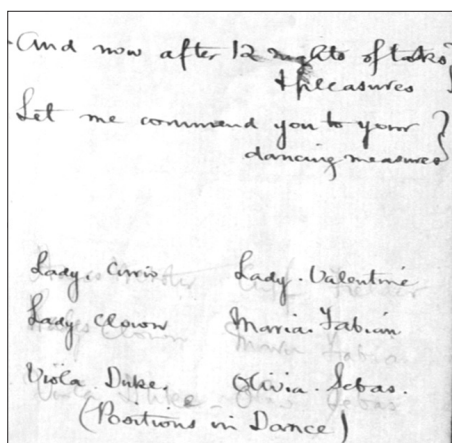 And now after 12 nights of tasks
& pleasures
Let me commend you to your
dancing measures
Lady. Curio Lady. Valentine
Lady Clown Maria. Fabian
Viola. Duke. Olivia. Sebas.
(Positions in Dance)